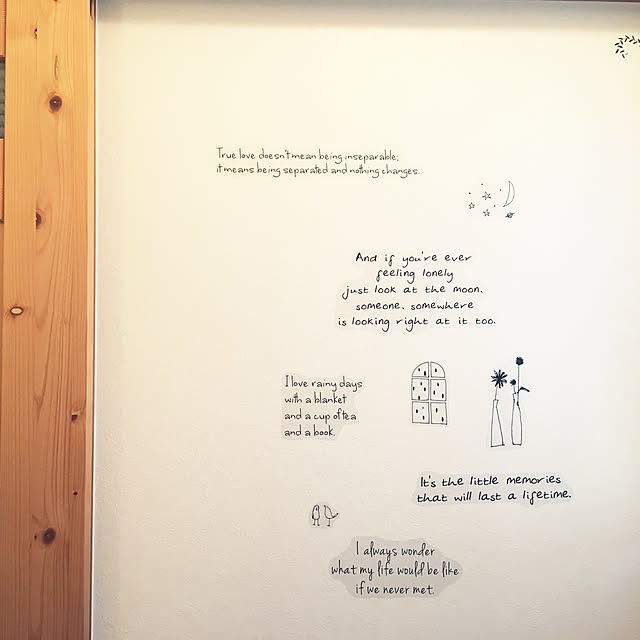 True love doesn't mean being inseparable;
it means being separated and nothing changes.
And if you're ever
feeling lonely
just look at the moon.
someone, somewhere
is looking right at it too.
I love rainy days
with a blanket
and a cup of tea
and a book.
It's the little memories
that will last a lifetime.
I always wonder
what my life would be like
if we never met.